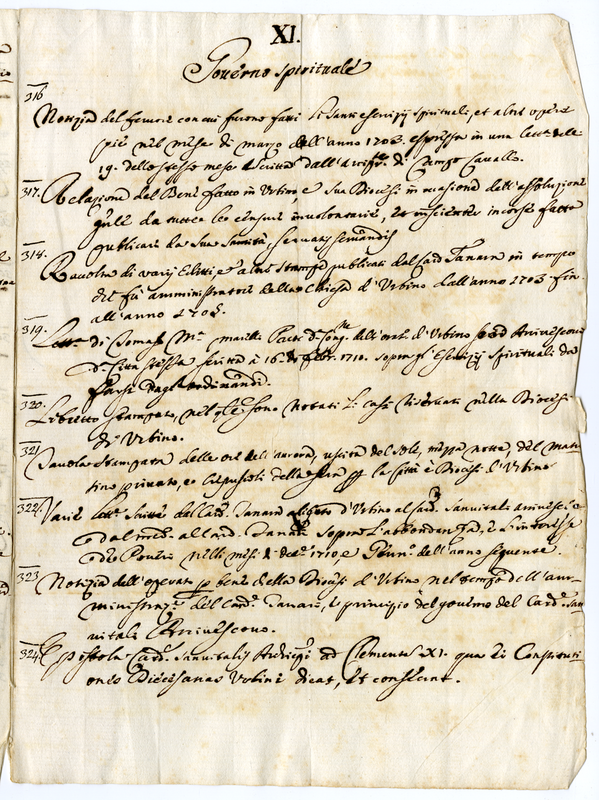 XI.
Gouerno spirituale
316
Notizia del feruore con cui furono fatti li Santi esercizij spirituali, et altre opere
pie nel mese di marzo dell'anno 1703. espressa in una lett.ª delli
19. dello stesso mese scritta dall' di Campo Cauallo.
317. Relazione del Bene fatto in Urbino, e sua Diocesi in occasione dell'assoluzione
gn̄le da tutte le censure inuolontarie, et inscienter incorse fatta
publicare da Sua Santità, seruatis seruandis
318. Raccolta di varij Editti et altre stampe publicati dal Card. Tanara in tempo
che fù amministratore della Chiesa d'Urbino dall'anno 1703. fin.
all'anno
319. Lett.ª di Tomaso M.ª Paci d. Cong.ne dell'orat. d'Urbino Arciuescouo
d. Città stessa scritta à 16. 1710. sopra gl'Esercizij Spirituali da
farsi dagl'ordinandi.
320. Libretto stampato, nel qle sono notati li casi riseruati nella Diocesi
di Urbino.
321 Tauola stampata delle ore dell'aurora, uscita del sole, mezza notte, del matu
tino priuato, e crepuscoli della sera p la Città e Diocesi d'Urbino
322. Varie lett.e scritte dal Card. Tanara d'Urbino al Card. Sanuitali arciuesc.o
e dal med. al Card. Tanara sopra l'abbondanza, e l'interesse
de Poueri nelli mesi di dec.e 1710 e Genn.o dell'anno seguente.
323 Notizia dell'operato p bene della Diocesi d'Urbino nel tempo dell'am-
ministraz.e del Card. Tanara, e principio del gouerno del Card. San
uitali Arciuescouo.
324. Epistola Card. Sanuitalij Archiepi ad Clemente XI. qua ei Constituti
ones Diecesanas Urbini dicat, et consecrat.